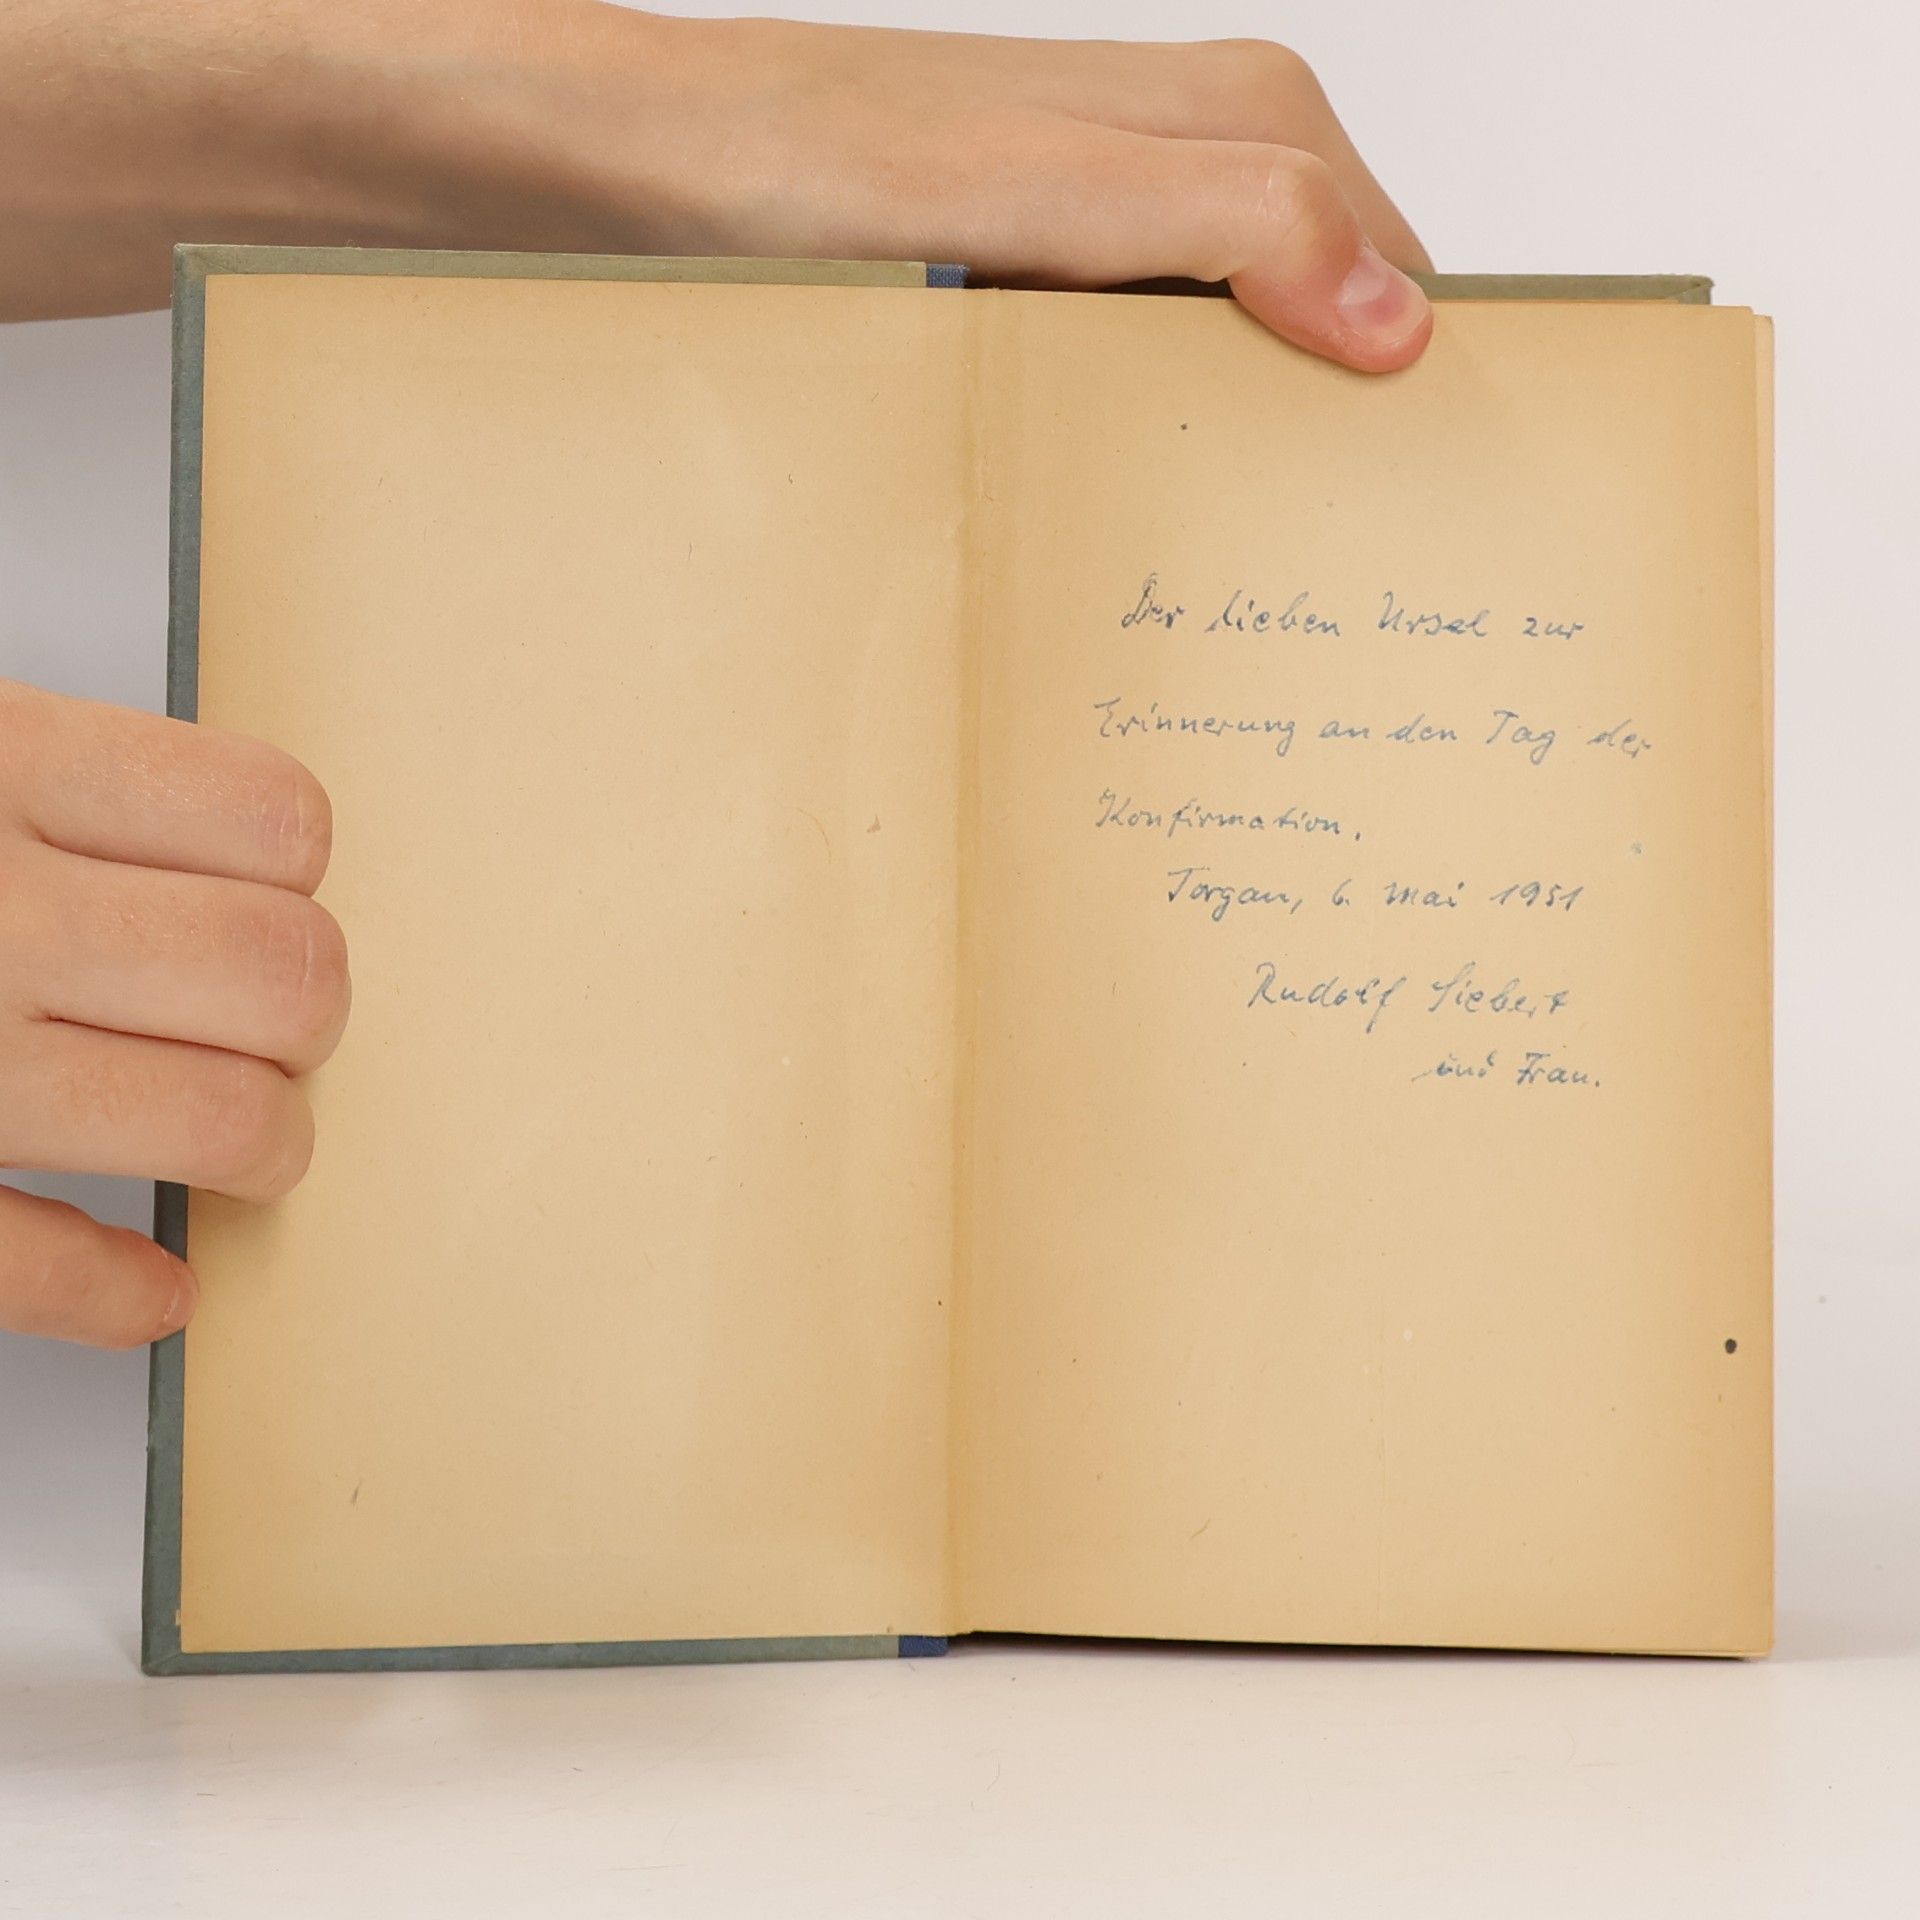 Der lieben Ursel zur
Erinnerung an den Tag der
Konfirmation.
Torgau, 6. Mai 1951
Rudolf Siebert
und Frau.